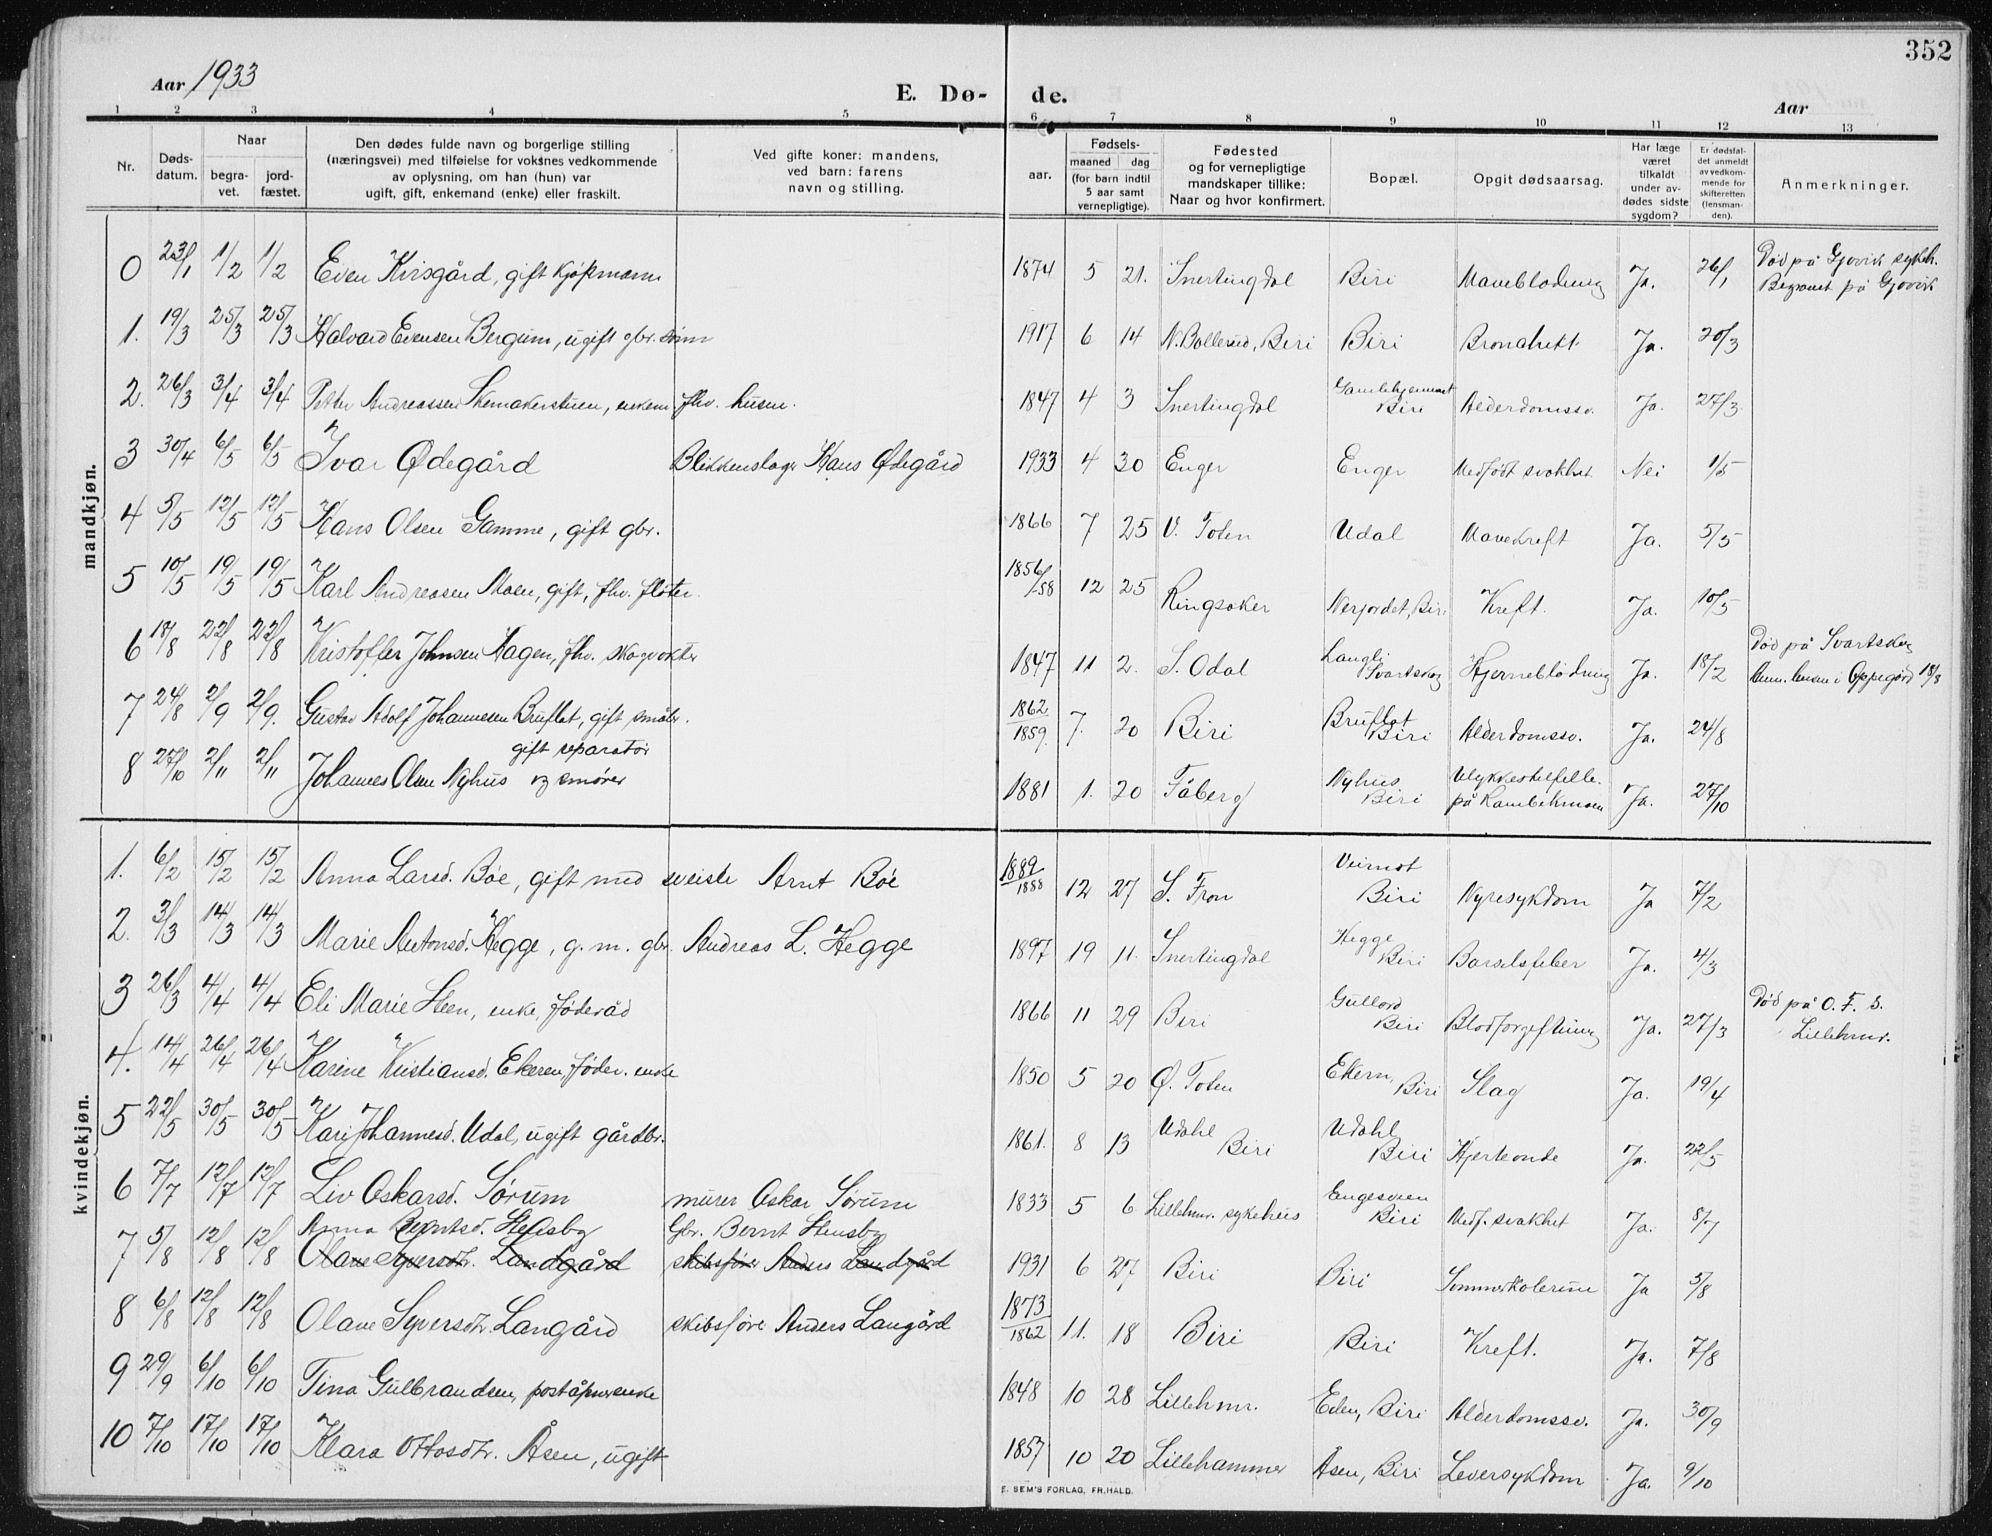 352
Aar 1933
E. Dø- de.
Aar
1 2 3 4 5 6 7 8 9 10 11 12 13
Nr.
Døds-
datum.
Naar
begra-
vet.
jord-
fæstet.
Den dødes fulde navn og borgerlige stilling
(næringsvei) med tilføielse for voksnes vedkommende
av oplysning, om han (hun) var
ugift, gift, enkemand (enke) eller fraskilt.
Ved gifte koner: mandens,
ved barn: farens
navn og stilling.
Fødsels-
aar.
maaned dag
(for barn indtil
5 aar samt
vernepligtige).
Fødested
og for vernepligtige
mandskaper tillike:
Naar og hvor konfirmert.
Bopæl.
Opgit dødsaarsag.
Har læge
været
tilkaldt
under av-
dødes sidste
sygdom?
Er dødsfal-
det anmeldt
av vedkom-
mende for
skifteretten
(lensman-
den).
Anmerkninger.
mandkjøn.
0 23/1 1/2 1/2 Even Kvisgård, gift kjøpmann 1874 5 21. Snertingdal Biri Maveblødning Ja. 26/1 Død på Gjøvik sykeh.
Begravet på Gjøvik
1. 19/3 25/3 25/3 Halvard Evensen Bergum, ugift gbr. sønn 1917 6 14 N. Bollerud, Biri Biri Ja. 20/3
2. 26/3 3/4 3/4 Petter Andreassen Skomakerstuen, enkem. fhv. husm. 1847 4 3 Snertingdal Gamlehjemmet
Biri Alderdomssv. Ja. 27/3
3 30/4 6/5 6/5 Ivar Ødegård Blikkenslager Hans Ødegård 1933 4 30 Enger Enger Medfødt svakhet Nei 1/5
4 5/5 12/5 12/5 Hans Olsen Gamme, gift gbr. 1866 7 25 V. Toten Udal Mavekreft Ja. 5/5
5 10/5 19/5 19/5 Karl Andreasen Moen, gift, fhv. fløter. 1856/58 12 25 Ringsaker Nerjordet, Biri Kreft. Ja. 10/5
6 18/8 22/8 22/8 Kristoffer Johnsen Hagen, fhv. skogvokter 1847 11 2. S. Odal Langli
Svartskog Hjerneblødning Ja. 18/2 Død på Svartskog
Oppegård 18/8
7 24/8 2/9 2/9. Gustav Adolf Johannesen Bruflat, gift småbr. 1862
1859. 7. 20 Biri Bruflat
Biri Alderdomssv. Ja. 24/8
gift separatør
8 27/10 2/11 2/11 Johannes Olsen Nyhus og smører 1881 1. 20 Fåberg Nyhus
Biri Ulykkestilfelle
på Ja. 27/10
kvindekjøn.
1. 6/2 15/2 15/2 Anna Larsd. Bøe, gift med sveiste Arnt Bøe 1889
1888 12 27 S. Fron Veimot
Biri Nyresykdom Ja 7/2
2. 3/3 14/3 14/3 Marie Antonsd. Hegge, g. m. gbr. Andreas L. Hegge 1897 19 11. Snertingdal Hegge
Biri Barselsfeber Ja. 4/3
3 26/3 4/4 4/4 Eli Marie Steen, enke, føderåd 1866 11 29 Biri Gullord
Biri Blodforgiftning Ja. 27/3 Død på O. F. S.
Lillehmr.
4. 14/4 26/4 26/4 Karine Kristiansd. Ekeren, føder. enke 1850 5 20 Ø. Toten Ekern,
Biri Slag Ja. 19/4
5 22/5 30/5 30/5 Kari Johannesd. Udal, ugift gårdbr. 1861. 8 13 Udahl
Biri Udahl
Biri Hjerteonde Ja. 22/5
6 7/7 12/7 12/7 Liv Oskarsd. Sørum murer Oskar Sørum 1833 5 6 Lillehmr. sykehus Engesveen
Biri Medf. svakhet Ja. 8/7
Anna Berntsd. Stensby Gbr. Bernt Stensby
7 5/8 12/8 12/8 Olane Syversdtr. Landgård skibsfører Anders Landgård 1931 6 27 Biri Biri Sommerkolerine Ja 5/8
8 6/8 12/8 12/8 Olane Syversdtr. Langård skibsføre Anders Langård 1873
1862 11. 18 Biri Biri Kreft. Ja. 7/8
9 29/9 6/10 6/10 Tina Gulbrandsen, poståpnerenke 1848 10 28 Lillehmr. Eden, Biri Alderdomssv. Ja. 30/9
10 7/10 17/10 17/10 Klara Ottosdtr. Åsen, ugift 1857 10 20 Lillehammer Åsen, Biri Leversykdom Ja. 9/10
E. SEM'S FORLAG, FR.HALD.